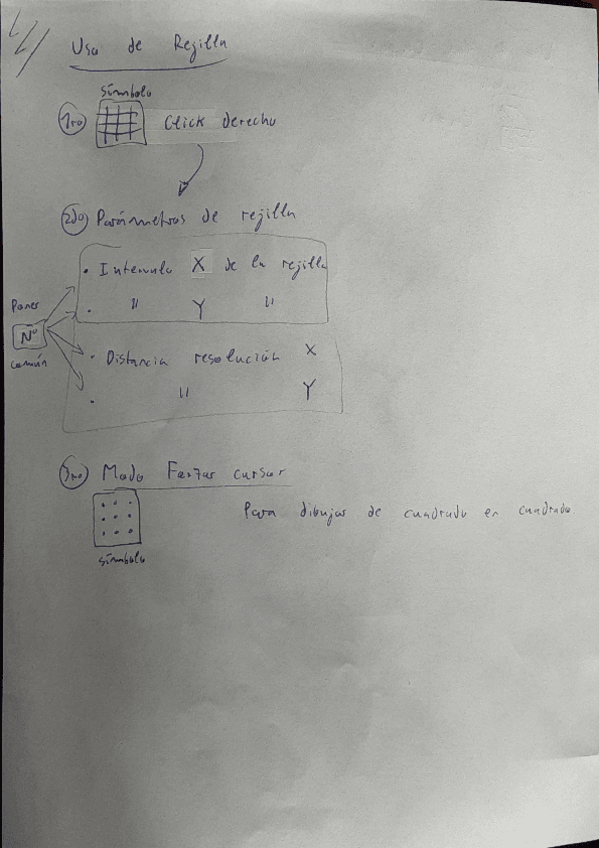 Uso de Rejilla
símbolo
1ro Click derecho
2do Parámetros de rejilla
• Intervalo X de la rejilla
• " Y "
Poner
Nº
común
• Distancia resolución X
• " Y
3ro Modo Forzar cursor
Para dibujar de cuadrado en cuadrado
símbolo